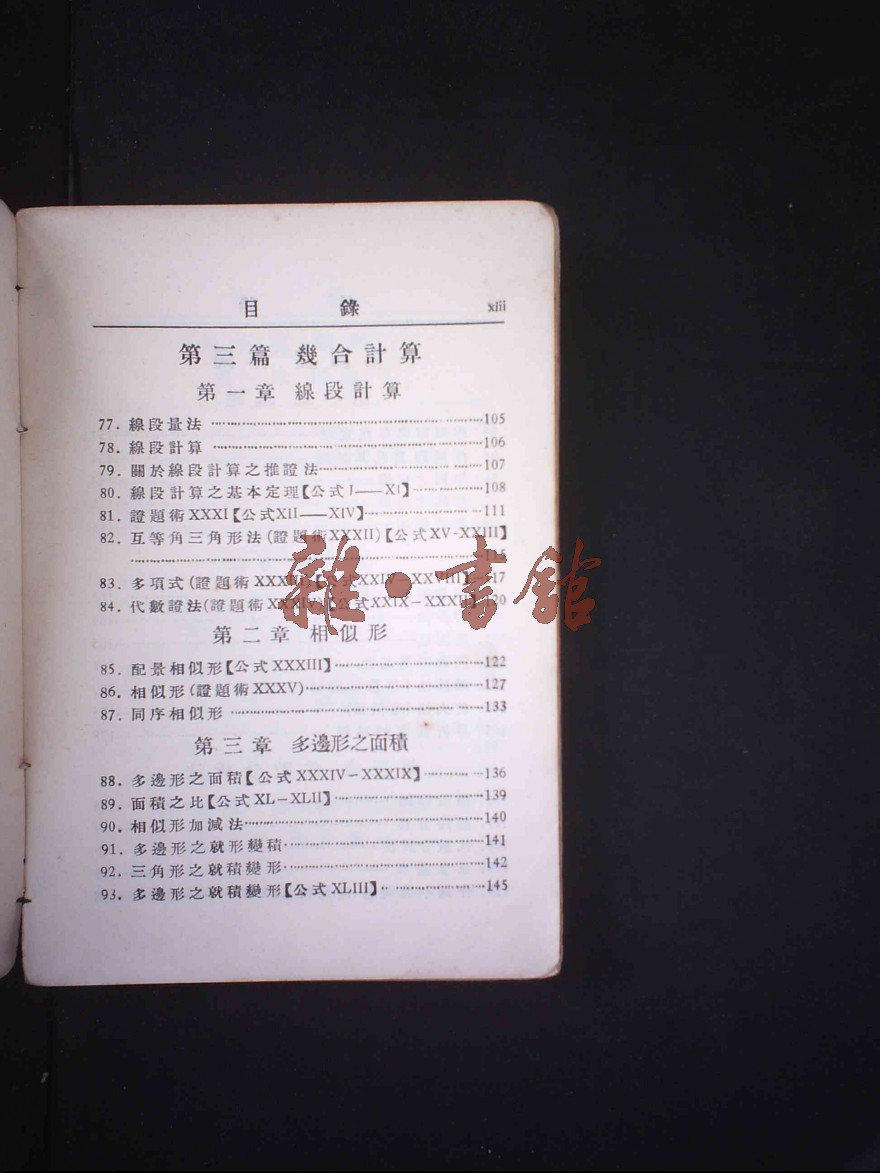 目 錄 xiii
第三篇 幾合計算
第一章 線段計算
77. 線段量法 ……105
78. 線段計算 ……106
79. 關於線段計算之推證法……107
80. 線段計算之基本定理【公式I——XI】……108
81. 證題術XXXI【公式XII——XIV】……111
82. 互等角三角形法(證題術XXXII)【公式XV-XXIII】
……115
83. 多項式(證題術XXXIII)【公式XXIV-XXVIII】……117
84. 代數證法(證題術XXXIV)【公式XXIX-XXXII】……120
雜·書館
第二章 相似形
85. 配景相似形【公式XXXIII】……122
86. 相似形(證題術XXXV)……127
87. 同序相似形……133
第三章 多邊形之面積
88. 多邊形之面積【公式XXXIV-XXXIX】……136
89. 面積之比【公式XL-XLII】……139
90. 相似形加減法……140
91. 多邊形之就形變積……141
92. 三角形之就積變形……142
93. 多邊形之就積變形【公式XLIII】……145